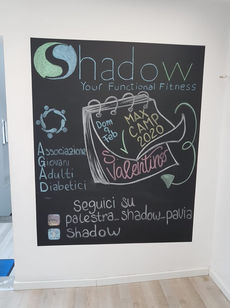 Shadow
Your Functional Fitness
Dom
9
Feb
MAX
CAMP
2020
S. Valentino
Associazione
Giovani
Adulti
Diabetici
Seguici su
palestra_shadow_pavia
Shadow